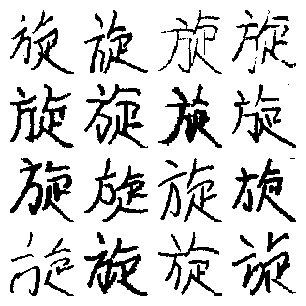 旋旋旋旋
旋旋旋旋
旋旋旋旋
旋旋旋旋